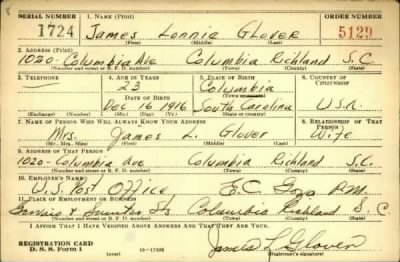 SERIAL NUMBER 1. NAME (Print) ORDER NUMBER
1724 James Lonnie Glover 5129
(First) (Middle) (Last)
2. ADDRESS (Print)
1020-Columbia Ave Columbia Richland S.C.
(Number and street or R. F. D. number) (Town) (County) (State)
3. TELEPHONE 4. AGE IN YEARS 5. PLACE OF BIRTH 6. COUNTRY OF CITIZENSHIP
23 Columbia
DATE OF BIRTH (Town or county)
Dec 16 1916 South Carolina U.S.A.
(Exchange) (Number) (Mo.) (Day) (Yr.) (State or country)
7. NAME OF PERSON WHO WILL ALWAYS KNOW YOUR ADDRESS 8. RELATIONSHIP OF THAT PERSON
Mrs. James L. Glover Wife
(Mr., Mrs., Miss) (First) (Middle) (Last)
9. ADDRESS OF THAT PERSON
1020-Columbia Ave Columbia Richland S.C.
(Number and street or R. F. D. number) (Town) (County) (State)
10. EMPLOYER'S NAME
U.S. Post Office E.C. P.M.
11. PLACE OF EMPLOYMENT OR BUSINESS
& Sumter Sts Columbia Richland S.C
(Number and street or R. F. D. number) (Town) (County) (State)
I AFFIRM THAT I HAVE VERIFIED ABOVE ANSWERS AND THAT THEY ARE TRUE.
REGISTRATION CARD
D. S. S. Form 1 16-17105 James L Glover
(Registrant's signature)